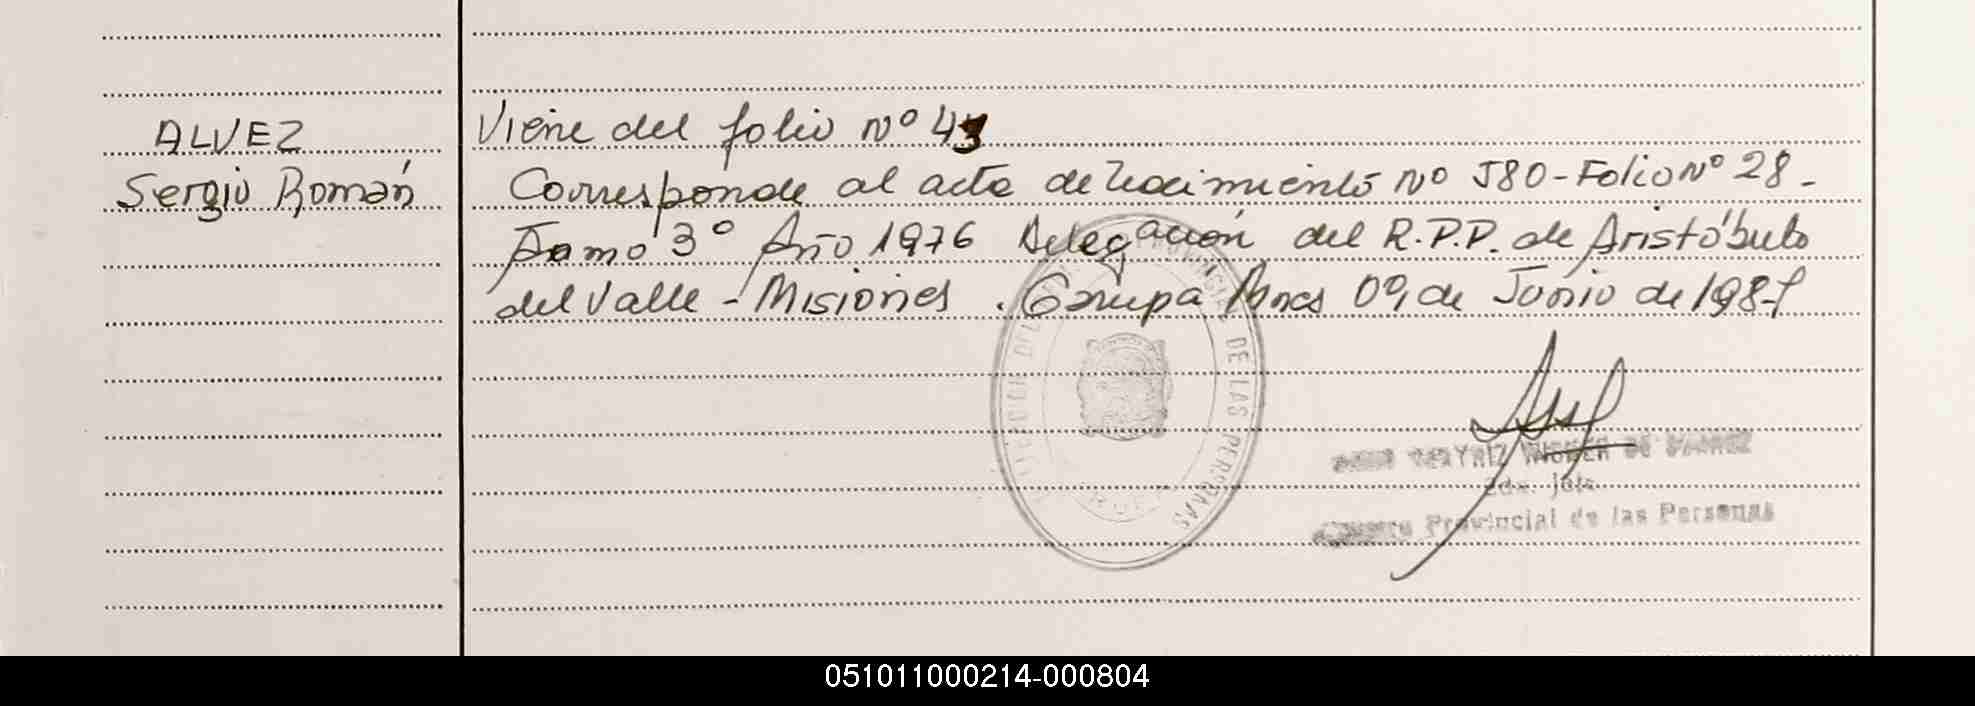 ALVEZ
Sergio Román
Viene del folio Nº 43
Corresponde al acta de Nacimiento Nº 580 - Folio Nº 28 -
Tomo 3º Año 1976 Delegación del R.P.P. de Aristóbulo
del Valle - Misiones. Garupá Mnes 09, de Junio de 1987
DE LAS PERSONAS
DE
2da. Jefe
Provincial de las Personas
051011000214-000804